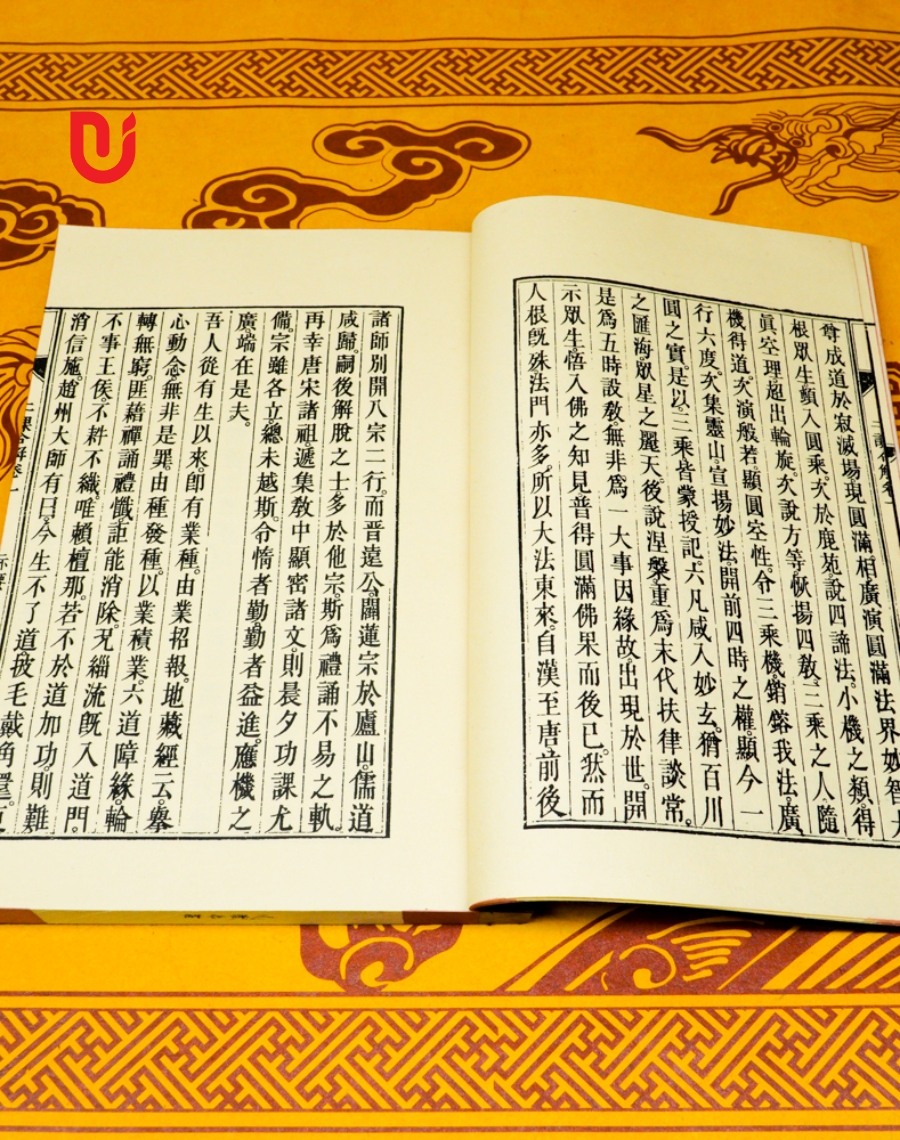 尊成道於寂滅場。現圓滿相。廣演圓滿法界妙智大
根眾生頓入圓乘。次於鹿苑說四諦法。小機之類。得
眞空理超出輪旋。次說方等。恢揚四敎。三乘之人。隨
機得道。次演般若。顯圓空性。令三乘機。銷鎔我法。廣
行六度。次集靈山宣揚妙法。開前四時之權。顯今一
圓之實。是以三乘皆蒙授記。六凡咸入妙玄。猶百川
之匯海。眾星之麗天。後說涅槃。重為末代扶律談常。
是為五時設敎。無非為一大事因緣故。出現於世。開
示眾生悟入佛之知見。普得圓滿佛果而後已。然而
人根旣殊。法門亦多。所以大法東來。自漢至唐。前後
諸師別開八宗二行。而晉遠公。闢蓮宗於廬山。儒道
咸歸。嗣後解脫之士多於他宗。斯為禮誦不易之軌。
再幸唐宋諸祖。遞集敎中顯密諸文。則晨夕功課尤
備。宗雖各立。總未越斯。令惰者勤。勤者益進。應機之
廣。端在是夫。
吾人從有生以來。卽有業種。由業招報。地藏經云。舉
心動念無非是罪。由種發種。以業積業。六道障緣。輪
轉無窮。匪藉禪誦禮懺。詎能消除。況緇流旣入道門。
不事王侯。不耕不織。唯賴檀那。若不於道加功。則難
消信施。趙州大師有曰。今生不了道。披毛戴角還。
二課合解卷一